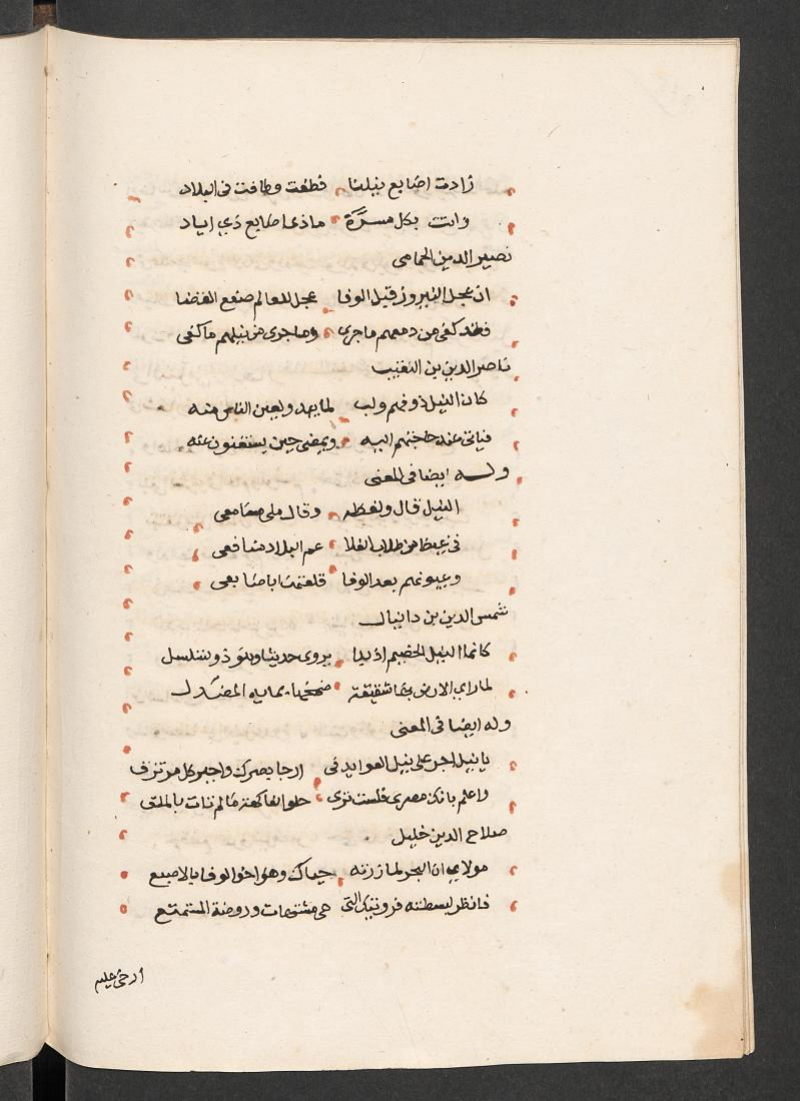 زادت اصابع نيلنا فطغت وطافت فى البلاد
واتت بكل مسرّة ماذى اصابع ذي اياد
نصير الدين الحمامى
ان عجل النيروز قبل الوفا عجل للعالم صفع القضا
فقد كفى من دمعهم ماجرى وماجرى من نيلهم ماكفى
ناصر الدين بن النقيب
كان النيل ذو فهم ولب لما يبدو لعين الناس منه
فياتى عند حاجتهم اليه ويمضى حين يستغنون عنه
وله ايضا فى المعنى
النيل قال ولفظه وقال ملى مسامعى
فى غيظ من طلب الغلا عم البلاد منافعى
وعيونهم بعد الوفا قلعتها باصابعى
شمس الدين بن دانيال
كانما النيل الخضم اذ بدا يروى حديثا وهو ذو تسلسل
لما راى الارض بها شقيقة بمايه المصندل
وله ايضا فى المعنى
يا نيل اجر على نيل العوايد فى ارجا مصرك واجبر كل مرتزق
واعلم بانك مصرى فلست ترى حلو الفاكهة مالم تات بالملق
صلاح الدين خليل
مولاي ان البحر لما زرته حياك وهو اخو الوفا بالاصبع
فانظر لبسطته فرؤيتك التى هى مشتهاه وروضة المتمتع
ارخى عليه